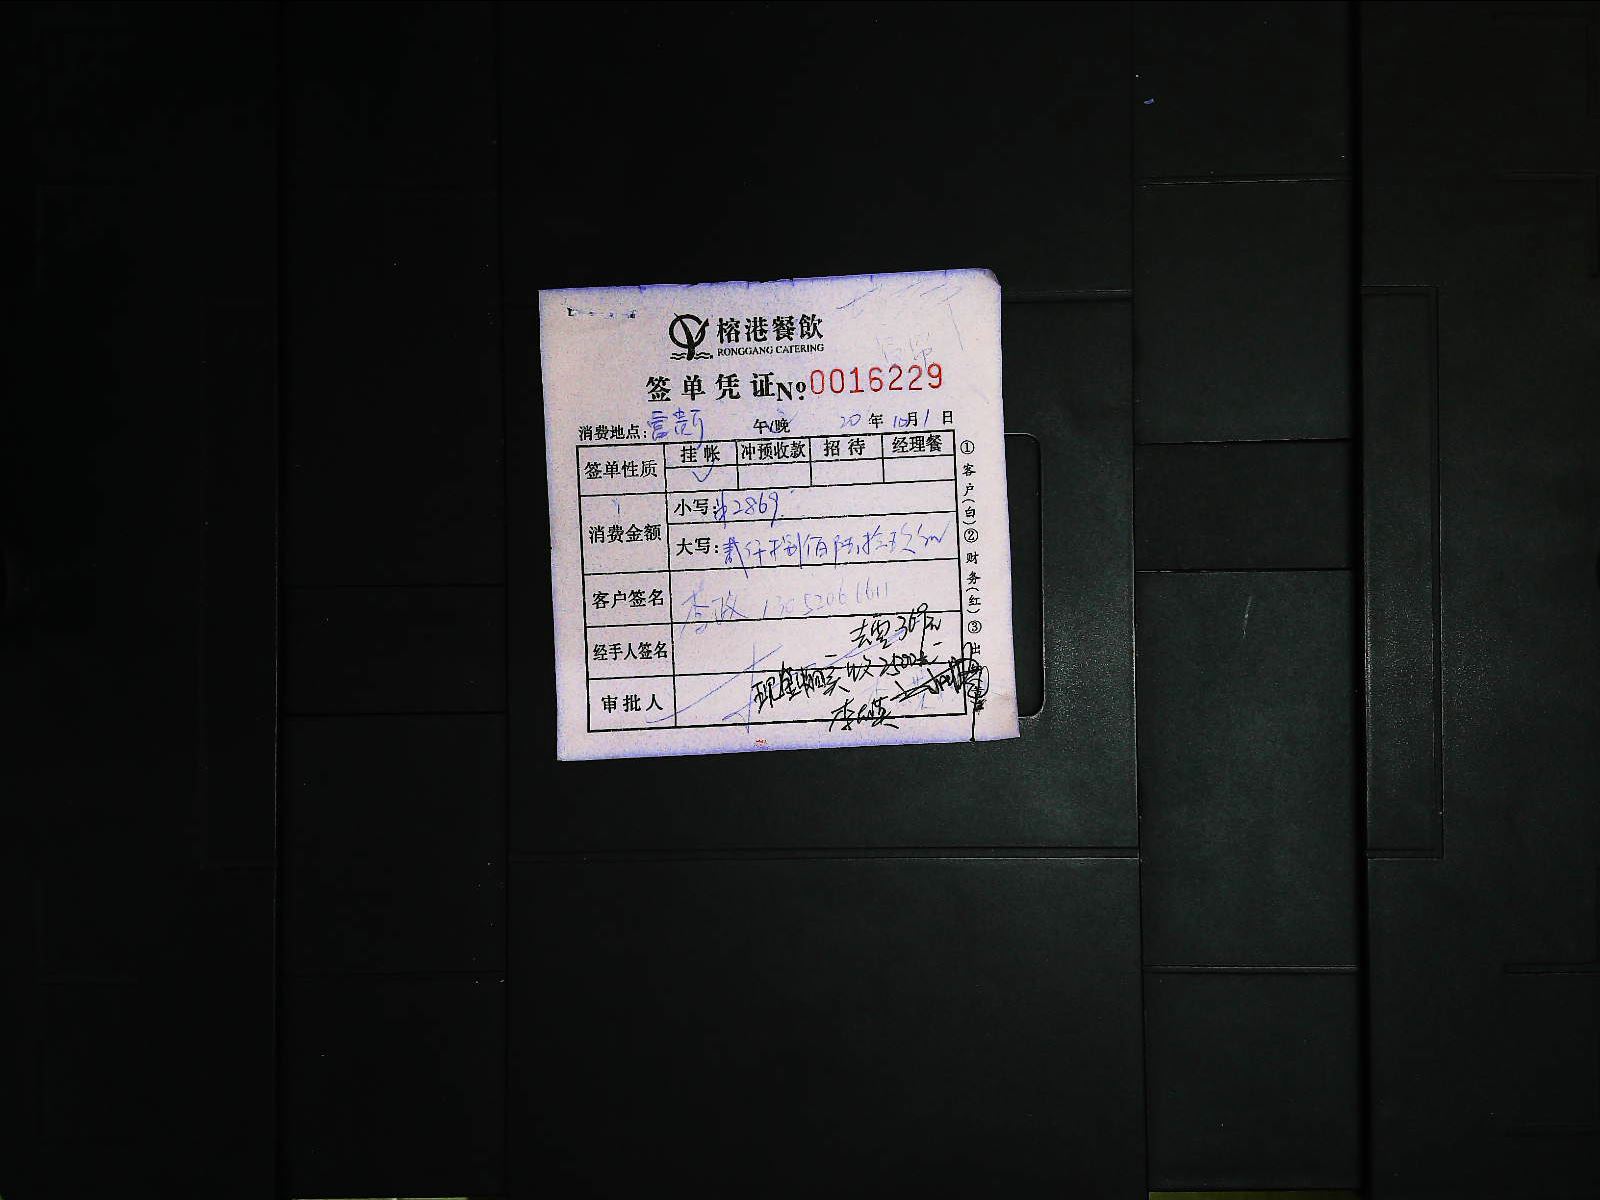 榕港餐飲
RONGGANG CATERING
签单凭证 №0016229
消费地点: 午/晚 20年10月1日
签单性质 挂帐 冲预收款 招待 经理餐
消费金额
小写: ¥2869.
大写: 贰仟捌佰陆拾玖元
客户签名 李政 13052066611
去零369元
经手人签名
实收2500元
审批人
①客户(白)②财务(红)③出